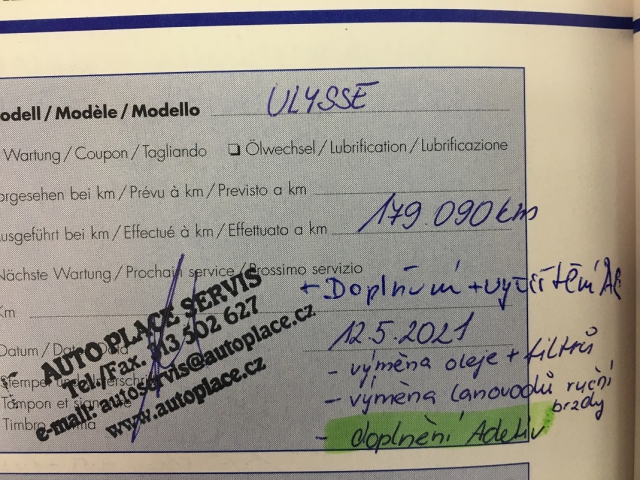 odell / Modèle / Modello ULYSSE
Wartung / Coupon / Tagliando ❏ Ölwechsel / Lubrification / Lubrificazione
orgesehen bei km / Prévu à km / Previsto a km
Ausgeführt bei km / Effectué à km / Effettuato a km 179.090 km
Nächste Wartung / Prochain service / Prossimo servizio
+ Doplnění + vyčištění AC
Km
Datum / Date 12.5.2021
- výměna oleje + filtrů
- výměna lanovodů ruční
brzdy
- doplnění Aditiv
Tampon et
Timbro
AUTO PLACE SERVIS
Tel./Fax. 313 502 627
e-mail: autoservis@autoplace.cz
www.autoplace.cz